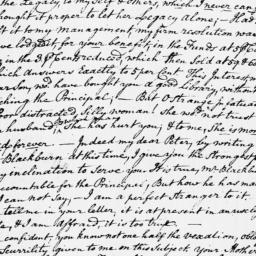 the Legacy to my Self & others, which I never can
thought it proper to let her Legacy alone; — Had
ft it to my management, my firm resolution was
ve lodg'd it for your benefit, in the Funds at 5
in the 3 Ct reduced, which then Sold at 59 & 6
hich answers Exactly to 5 per Cent This Interest
ar Son, we have bought you a good Library, without
ching the Principal, — But O Strange infatua
oor distracted Silly woman! She wou'd not trust
husband; She has hurt you; & to me, She is mo
d forever. — Indeed my dear Peter, by writing
Blackburn at this time, I give you the Strongest
y enclination to Serve you. It is true, Mr Blackbu
ccountable for the Principal, But how he has man
I can not Say, — I am a perfect Stranger to it.
tell me in your letter, it is at present in an unsettl
te, & I am affraid, it is too true —
confident you know not one half the vexation, oblo
Scurrility given to me on this Subject Your Mother